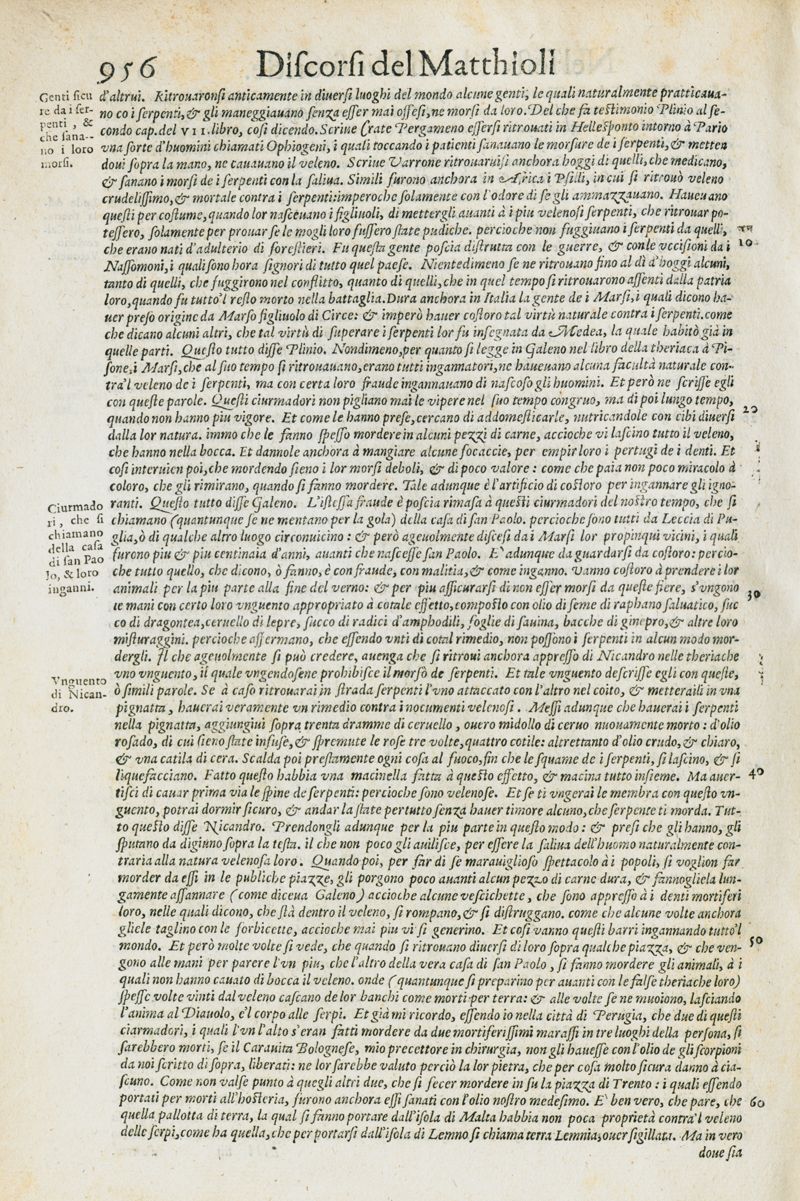 956
Discorsi del Matthioli
Genti sicu
re da i ser-
penti, &
che sana-
no i loro
morsi.
d'altrui. Ritrouaronsi anticamente in diuersi luoghi del mondo alcune genti, le quali naturalmente pratticaua-
no co i serpenti, & gli maneggiauano senza esser mai offesi, ne morsi da loro. Del che fà testimonio Plinio al se-
condo cap. del VII. libro, cosi dicendo. Scriue Crate Pergameno essersi ritrouati in Hellesponto intorno à Pario
vna sorte d'huomini chiamati Ophiogeni, i quali toccando i patienti sanauano le morsure de i serpenti, & metten
doui sopra la mano, ne cauauano il veleno. Scriue Varrone ritrouaruisi anchora hoggi di quelli, che medicano,
& sanano i morsi de i serpenti con la saliua. Simili furono anchora in Africa i Psilli, in cui si ritrouò veleno
crudelissimo, & mortale contra i serpenti: imperoche solamente con l'odore di se gli ammazzauano. Haueuano
questi per costume, quando lor nasceuano i figliuoli, di mettergli auanti à i piu velenosi serpenti, che ritrouar po-
tessero, solamente per prouar se le mogli loro fussero state pudiche. percioche non fuggiuano i serpenti da quelli,
che erano nati d'adulterio di forestieri. Fu questa gente poscia distrutta con le guerre, & con le vccisioni da i
10
Nassomoni, i quali sono hora signori di tutto quel paese. Nientedimeno se ne ritrouano fino al dì d'hoggi alcuni,
tanto di quelli, che fuggirono nel conflitto, quanto di quelli, che in quel tempo si ritrouarono assenti dalla patria
loro, quando fu tutto'l resto morto nella battaglia. Dura anchora in Italia la gente de i Marsi, i quali dicono ha-
uer preso origine da Marso figliuolo di Circe: & imperò hauer costoro tal virtù naturale contra i serpenti. come
che dicano alcuni altri, che tal virtù di superare i serpenti lor fu insegnata da Medea, la quale habitò già in
quelle parti. Questo tutto disse Plinio. Nondimeno, per quanto si legge in Galeno nel libro della theriaca à Pi-
sone, i Marsi, che al suo tempo si ritrouauano, erano tutti ingannatori, ne haueuano alcuna facultà naturale con-
tra'l veleno de i serpenti, ma con certa loro fraude ingannauano di nascoso gli huomini. Et però ne scrisse egli
con queste parole. Questi ciurmadori non pigliano mai le vipere nel suo tempo congruo, ma di poi lungo tempo,
quando non hanno piu vigore. Et come le hanno prese, cercano di addomesticarle, nutricandole con cibi diuersi
20
dalla lor natura. immo che le fanno spesso mordere in alcuni pezzi di carne, accioche vi lascino tutto il veleno,
che hanno nella bocca. Et dannole anchora à mangiare alcune focaccie, per empir loro i pertugi de i denti. Et
cosi interuien poi, che mordendo sieno i lor morsi deboli, & di poco valore: come che paia non poco miracolo à
coloro, che gli rimirano, quando si fanno mordere. Tale adunque è l'artificio di costoro per ingannare gli igno-
Ciurmado
ri, che si
chiamano
della casa
di san Pao
lo, & loro
inganni.
ranti. Questo tutto disse Galeno. L'istessa fraude è poscia rimasa à questi ciurmadori del nostro tempo, che si
chiamano (quantunque se ne mentano per la gola) della casa di san Paolo. percioche sono tutti da Leccia di Pu-
glia, ò di qualche altro luogo circonuicino: & però ageuolmente discesi da i Marsi lor propinqui vicini, i quali
furono piu & piu centinaia d'anni, auanti che nascesse san Paolo. E' adunque da guardarsi da costoro: percio-
che tutto quello, che dicono, ò fanno, è con fraude, con malitia, & come inganno. Vanno costoro à prendere i lor
animali per la piu parte alla fine del verno: & per piu assicurarsi di non esser morsi da queste fiere, s'vngono
30
le mani con certo loro vnguento appropriato à cotale effetto, composto con olio di seme di raphano saluatico, suc
co di dragontea, ceruello di lepre, succo di radici d'amphodili, foglie di sauina, bacche di ginepro, & altre loro
misturaggini. percioche affermano, che essendo vnti di cotal rimedio, non possono i serpenti in alcun modo mor-
dergli. Il che ageuolmente si può credere, auenga che si ritroui anchora appresso di Nicandro nelle theriache
Vnguento
di Nican-
dro.
vno vnguento, il quale vngendosene prohibisce il morso de serpenti. Et tale vnguento descrisse egli con queste,
ò simili parole. Se à caso ritrouarai in strada serpenti l'vno attaccato con l'altro nel coito, & metteraili in vna
pignatta, hauerai veramente vn rimedio contra i nocumenti velenosi. Messi adunque che hauerai i serpenti
nella pignatta, aggiungiui sopra trenta dramme di ceruello, ouero midollo di ceruo nuouamente morto: d'olio
rosado, di cui sieno state infuse, & spremute le rose tre volte, quattro cotile: altrettanto d'olio crudo, & chiaro,
& vna catila di cera. Scalda poi prestamente ogni cosa al fuoco, fin che le squame de i serpenti, si lascino, & si
liquefacciano. Fatto questo habbia vna macinella fatta à questo effetto, & macina tutto insieme. Ma auer-
40
tisci di cauar prima via le spine de serpenti: percioche sono velenose. Et se ti vngerai le membra con questo vn-
guento, potrai dormir sicuro, & andar la state per tutto senza hauer timore alcuno, che serpente ti morda. Tut-
to questo disse Nicandro. Prendongli adunque per la piu parte in questo modo: & presi che gli hanno, gli
sputano da digiuno sopra la testa. il che non poco gli auilisce, per essere la saliua dell'huomo naturalmente con-
traria alla natura velenosa loro. Quando poi, per far di se marauiglioso spettacolo à i popoli, si voglion far
morder da essi in le publiche piazze, gli porgono poco auanti alcun pezzo di carne dura, & fannogliela lun-
gamente affannare (come diceua Galeno) accioche alcune vescichette, che sono appresso à i denti mortiferi
loro, nelle quali dicono, che stà dentro il veleno, si rompano, & si distruggano. come che alcune volte anchora
gliele taglino con le forbicette, accioche mai piu vi si generino. Et cosi vanno questi barri ingannando tutto'l
mondo. Et però molte volte si vede, che quando si ritrouano diuersi di loro sopra qualche piazza, & che ven-
50
gono alle mani per parere l'vn piu, che l'altro della vera casa di san Paolo, si fanno mordere gli animali, à i
quali non hanno cauato di bocca il veleno. onde (quantunque si preparino per auanti con le false theriache loro)
spesse volte vinti dal veleno cascano de lor banchi come morti per terra: & alle volte se ne muoiono, lasciando
l'anima al Diauolo, e'l corpo alle serpi. Et già mi ricordo, essendo io nella città di Perugia, che due di questi
ciarmadori, i quali l'vn l'alto s'eran fatti mordere da due mortiferissimi marassi in tre luoghi della persona, si
sarebbero morti, se il Carauita Bolognese, mio precettore in chirurgia, non gli hauesse con l'olio de gli scorpioni
da noi scritto di sopra, liberati: ne lor sarebbe valuto perciò la lor pietra, che per cosa molto sicura danno à cia-
scuno. Come non valse punto à quegli altri due, che si fecer mordere in su la piazza di Trento: i quali essendo
portati per morti all'hosteria, furono anchora essi sanati con l'olio nostro medesimo. E' ben vero, che pare, che
60
quella pallotta di terra, la qual si fanno portare dall'isola di Malta habbia non poca proprietà contra'l veleno
delle serpi, come ha quella, che per portarsi dall'isola di Lemno si chiama terra Lemnia, ouer sigillata. Ma in vero
doue sia